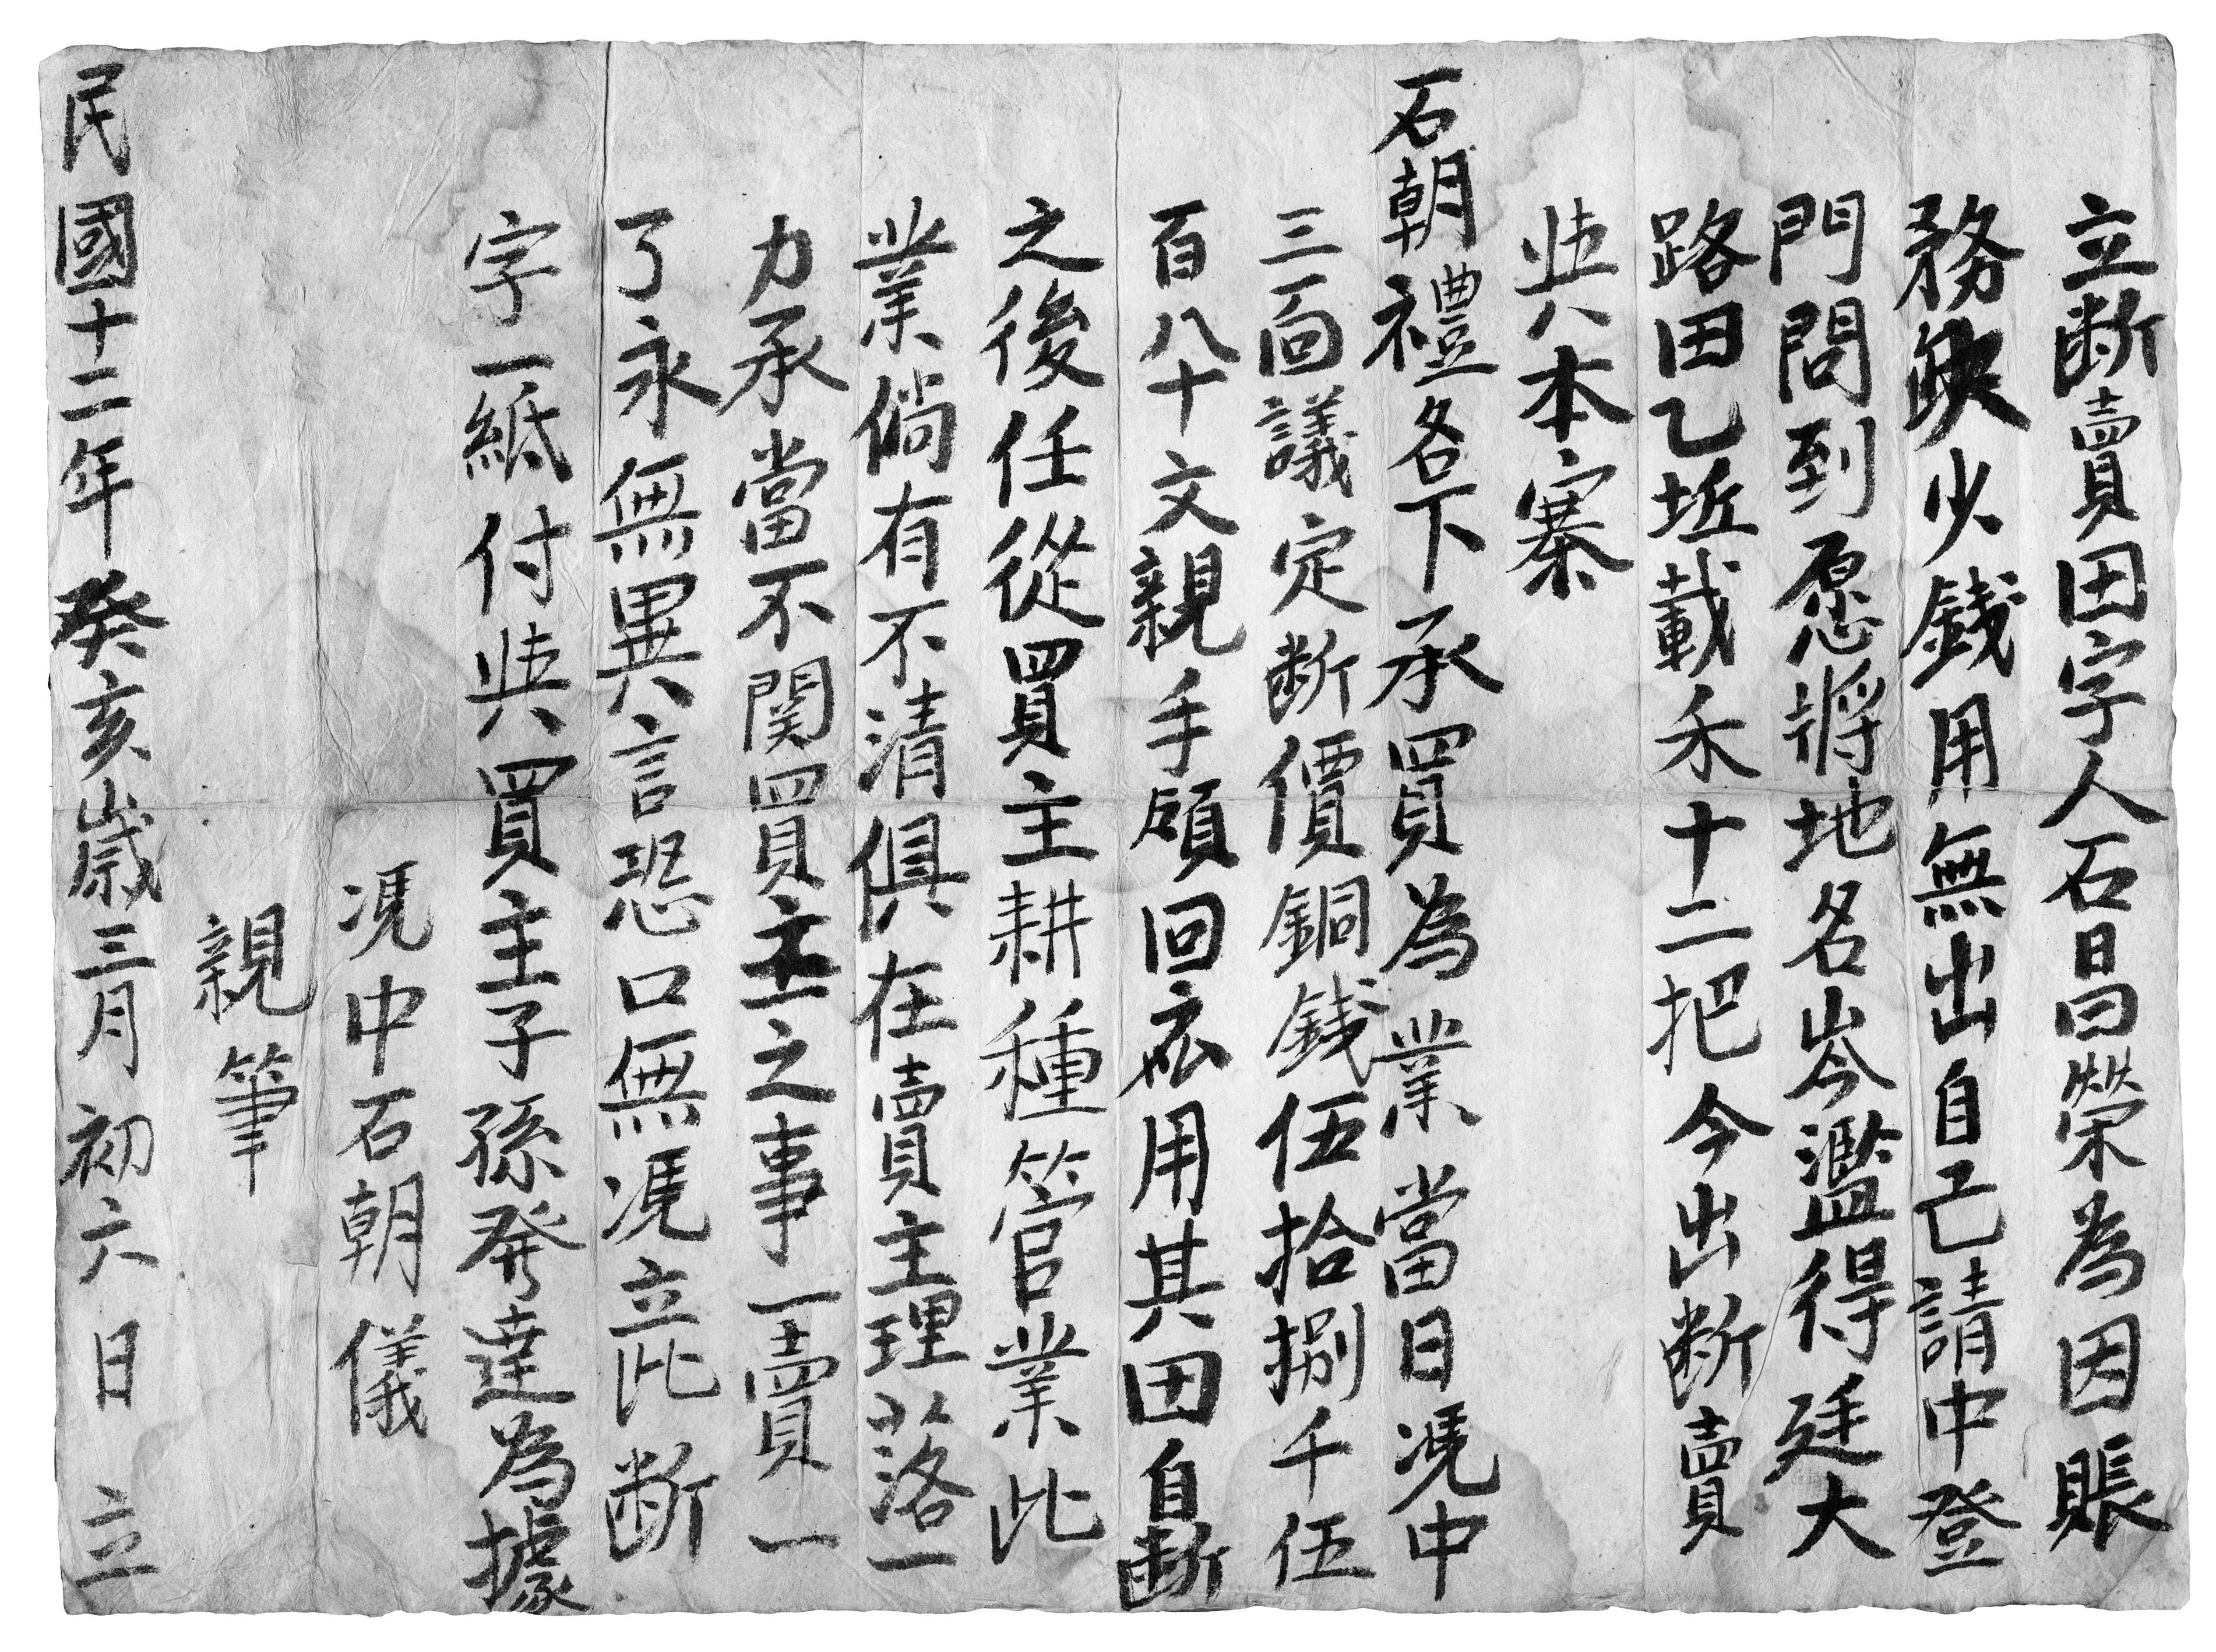 立断賣田字人石昌荣為因賬
務缺少錢用無出自己請中登
門問到愿將地名岑濫得廷大
路田乙坵載禾十二把今出断賣
與本寨
石朝禮名下承買為業當日凴中
三面議定断價銅錢伍拾捌千伍
百八十文親手領回應用其田自断
之後任從買主耕種管業此
業倘有不清俱在賣主理落一
力承當不関買主之事一賣一
了永無異言恐口無凴立此断
字一紙付與買主子孫発達為據
凴中石朝儀
親筆
民國十二年癸亥歲三月初六日立